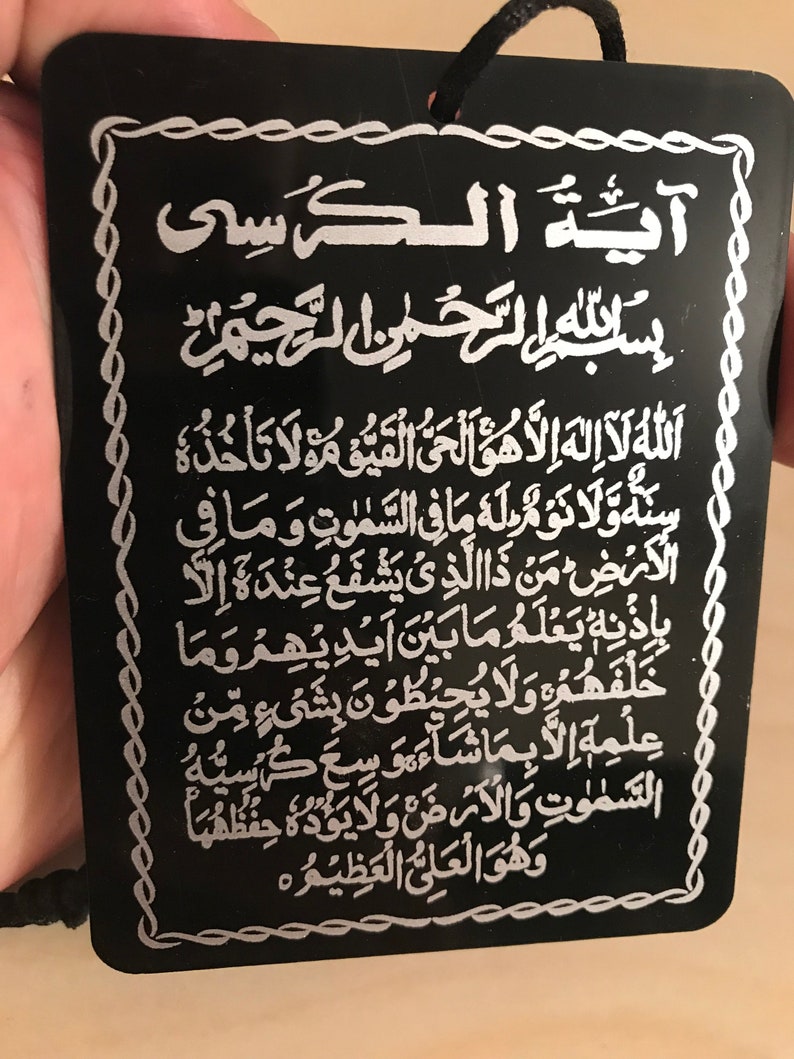 آيَةُ الكُرسِى
بِسْمِ اللّٰهِ الرَّحْمٰنِ الرَّحِيْمِ
اَللّٰهُ لَآ اِلٰهَ اِلَّا هُوَۚ اَلْحَىُّ الْقَيُّوْمُ ۚ لَا تَاْخُذُهٗ
سِنَةٌ وَّلَا نَوْمٌ ؕ لَهٗ مَا فِى السَّمٰوٰتِ وَمَا فِى
الْاَرْضِ ؕ مَنْ ذَا الَّذِىْ يَشْفَعُ عِنْدَهٗٓ اِلَّا
بِاِذْنِهٖ ؕ يَعْلَمُ مَا بَيْنَ اَيْدِيْهِمْ وَمَا
خَلْفَهُمْ ۚ وَلَا يُحِيْطُوْنَ بِشَىْءٍ مِّنْ
عِلْمِهٖٓ اِلَّا بِمَا شَآءَ ۚ وَسِعَ كُرْسِيُّهُ
السَّمٰوٰتِ وَالْاَرْضَ ۚ وَلَا يَؤُدُهٗ حِفْظُهُمَا ۚ
وَهُوَ الْعَلِىُّ الْعَظِيْمُ ○